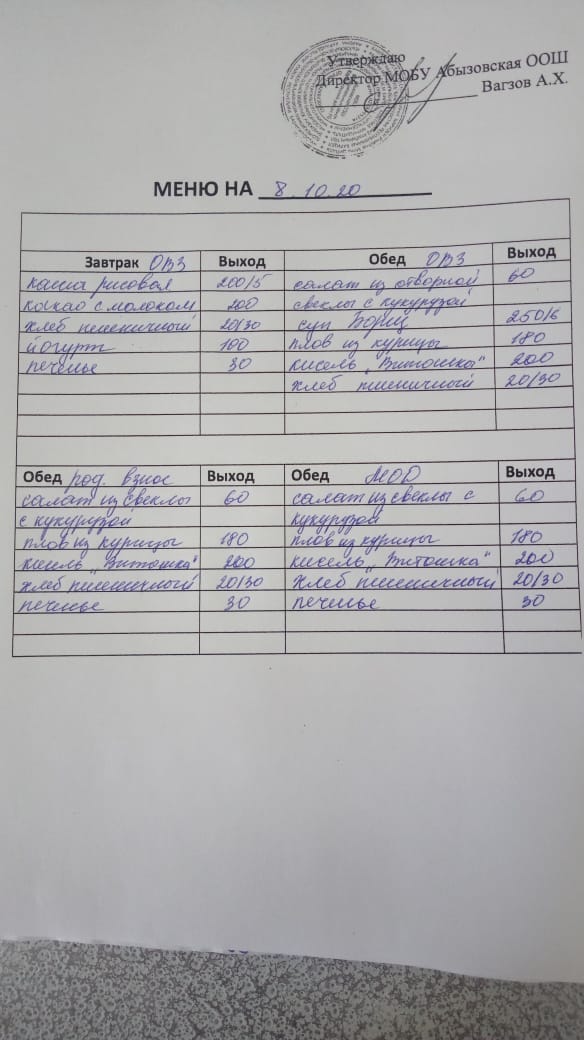 Утверждаю
Директор МОБУ Абызовская ООШ
Вагзов А.Х.
МЕНЮ НА 8.10.20
Завтрак ОВЗ Выход Обед ОВЗ Выход
каша рисовая 200/5 салат из отворной 60
какао с молоком 200 свеклы с кукурузой
хлеб пшеничный 20/30 суп Борщ 250/6
йогурт 100 плов из курицы 180
печенье 30 кисель „Витошка" 200
хлеб пшеничный 20/30
Обед род. взнос Выход Обед МОД Выход
салат из свеклы 60 салат из свеклы с 60
с кукурузой кукурузой
плов из курицы 180 плов из курицы 180
кисель „Витошка" 200 кисель „Витошка" 200
хлеб пшеничный 20/30 хлеб пшеничный 20/30
печенье 30 печенье 30